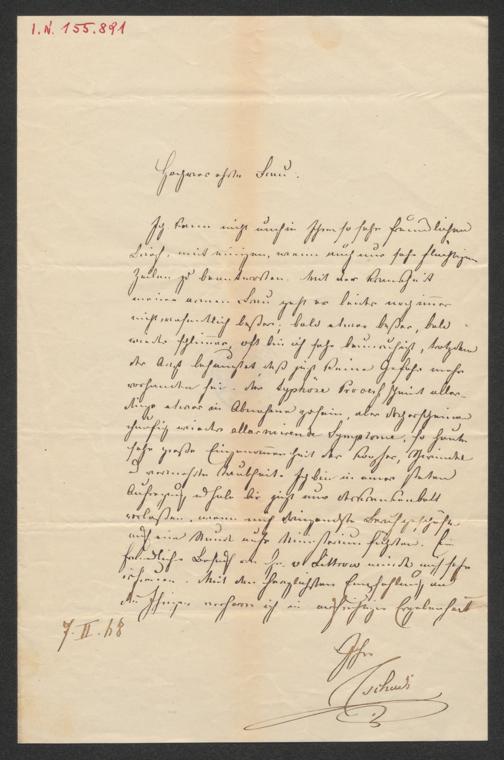 I.N. 155.891
Hochverehrte Frau.
Ich kann nicht umhin Ihren so sehr freundlichen
Brief, mit einigen, wenn auch nur sehr flüchtigen
Zeilen zu beantworten. Mit der Krankheit
meiner armen Frau geht es leider noch immer
nicht wesentlich besser, bald etwas besser, bald
wieder schlimmer, oft bin ich sehr beunruhigt, trotzdem
der Arzt behauptet, daß jetzt keine Gefahr mehr
vorhanden sei. Der typhöse Proceß scheint aller-
dings etwas in Abnahme zu sein, aber dagegen
häufig wieder allarmirende Symptome, so heute
sehr große Eingenommenheit des Kopfes, Schwindel
u vermehrte Taubheit. Ich bin in einer steten
Aufregung u habe bis jetzt nur das Krankenbett
verlassen, wenn mich dringendste Berufsgeschäfte
auf eine Stunde aufs Ministerium führten. Ein
freundlicher Besuch der Fr. v Littrow würde mich sehr
freuen. Mit den herzlichsten Empfehlungen an
die Ihrigen verharre ich in aufrichtiger Ergebenheit
7. II. 68
Ihr
Tschudi